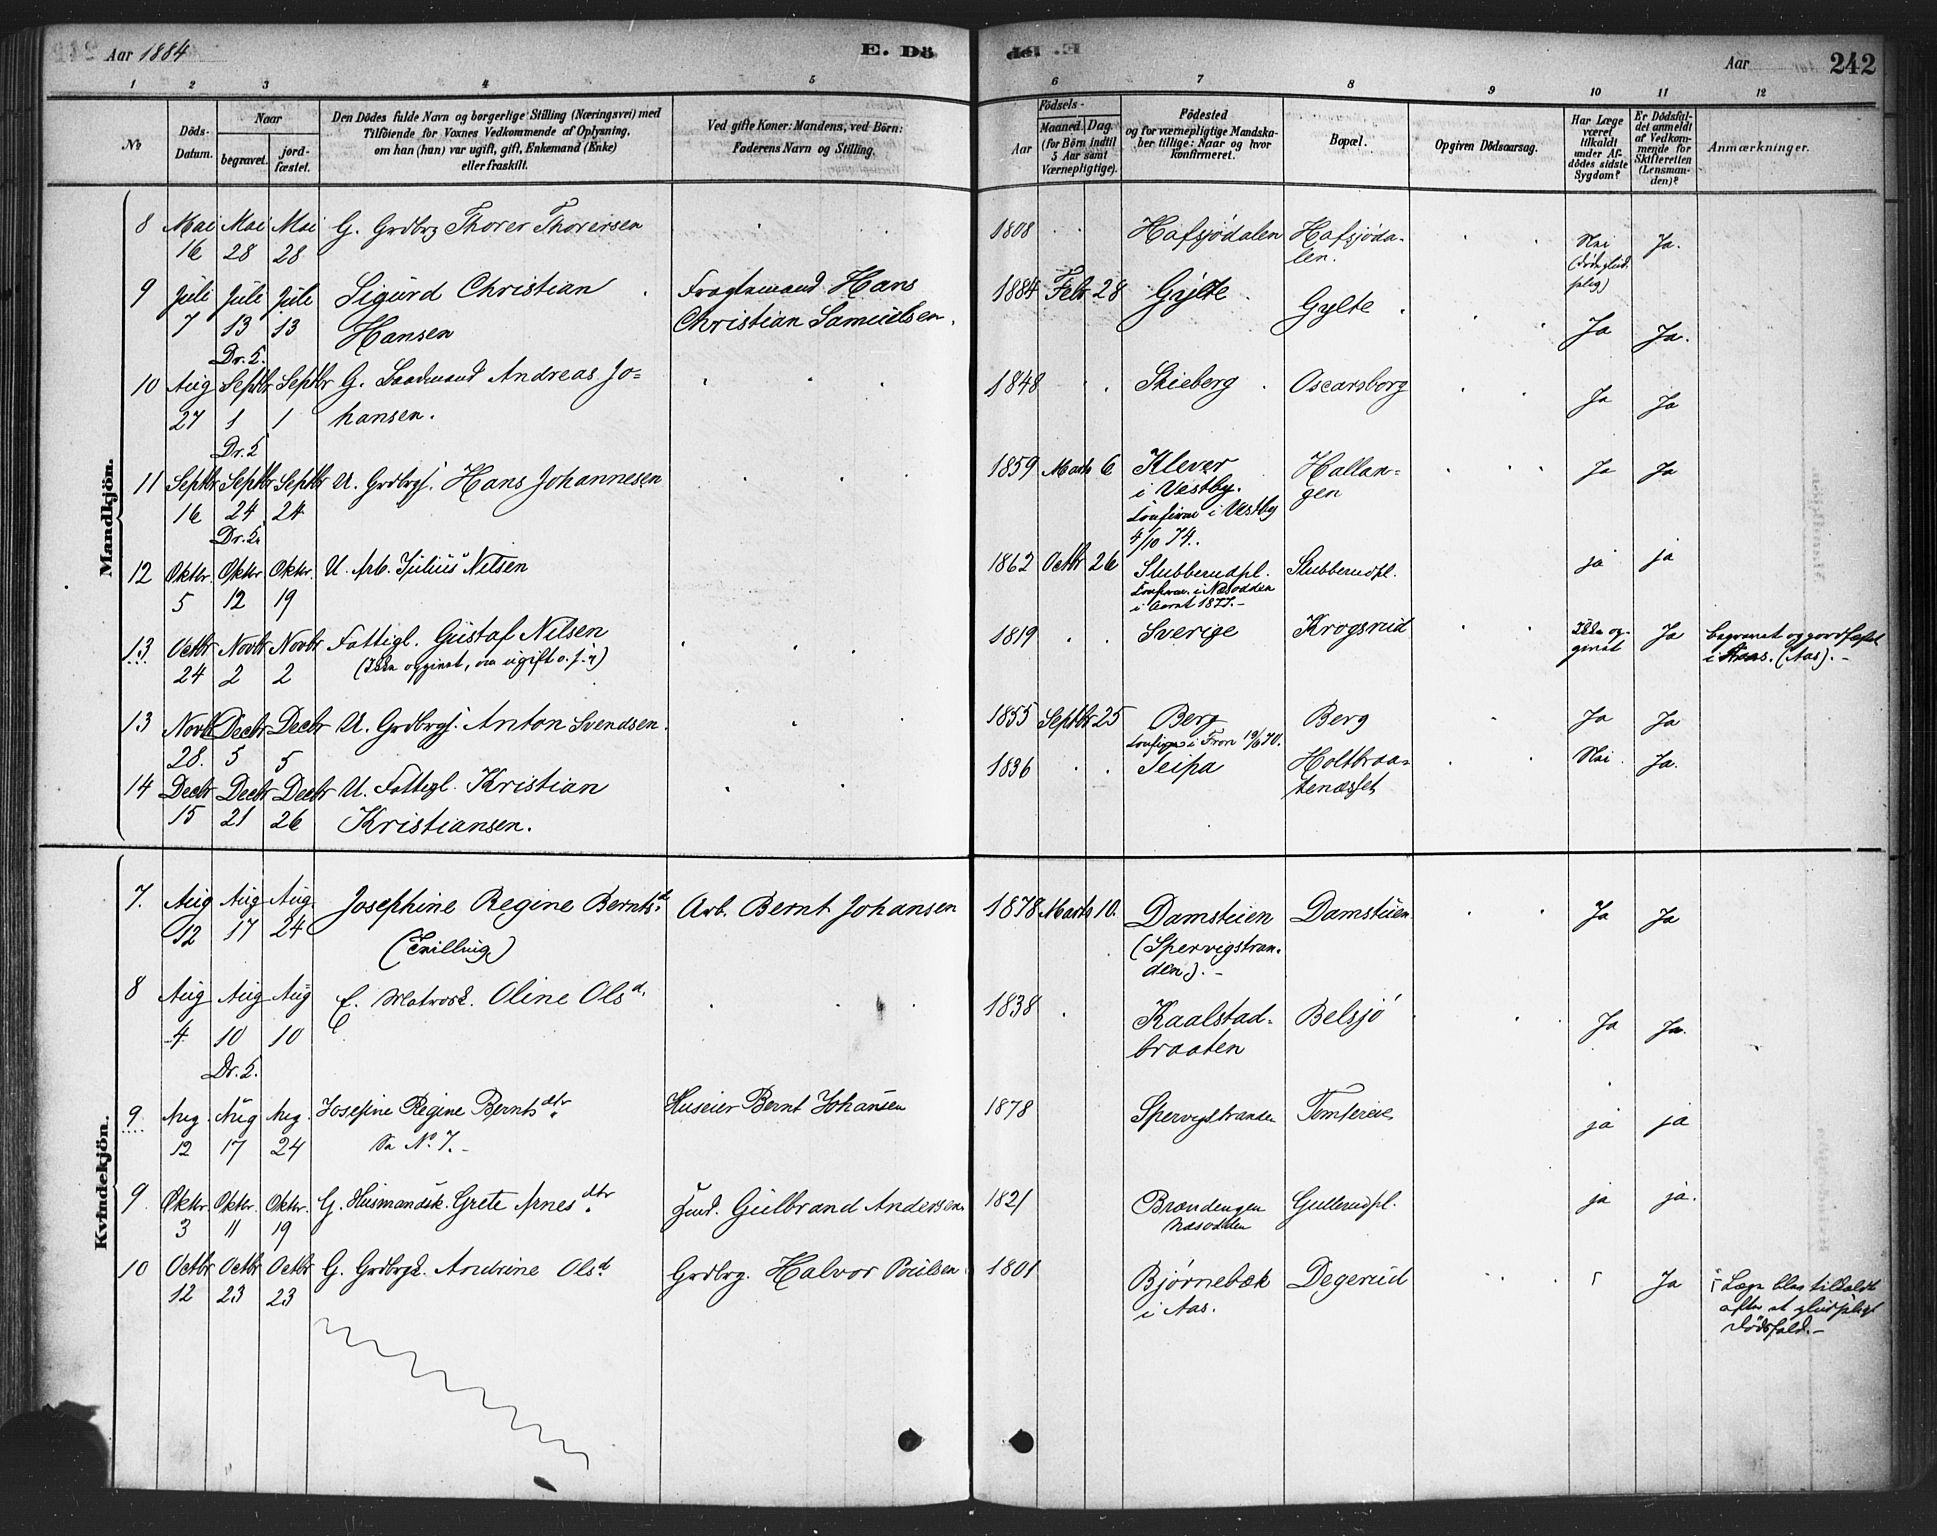 Aar 1884
E. Dö
de. E.
Aar
242
1 2 3 4 5 6 7 8 9 10 11 12
No
Döds-Datum.
Naar
begravet.
jord-fæstet.
Den Dödes fulde Navn og borgerlige Stilling (Næringsvei) med
Tilföiende for Voxnes Vedkommende af Oplysning,
om han (hun) var ugift, gift, Enkemand (Enke)
eller fraskilt.
Ved gifte Koner: Mandens, ved Börn:
Faderens Navn og Stilling.
Födsels-
Aar
Maaned. Dag.
(for Börn indtil
5 Aar samt
Værnepligtige).
Födested
og for værnepligtige Mandska-
ber tillige: Naar og hvor
konfirmeret.
Bopæl.
Opgiven Dödsaarsag.
Har Læge
været
tilkaldt
under Af-
dödes sidste
Sygdom?
Er Dödsfal-
det anmeldt
af Vedkom-
mende for
Skifteretten
(Lensman-
den)?
Anmærkninger.
Mandkjön.
8 Mai 16 Mai 28 Mai 28 G. Grdbrg Thorer Thorersen 1808 Hafsjödalen Hafsjöda-
len. Nei Ja.
9 Juli 7 Juli 13 Juli 13 Sigurd Christian
Hansen Fragtemand Hans
Christian Samuelsen. 1884 Febr 28 Gylte Gylte Ja Ja.
10 Aug 27 Dr. 5. Septbr 1 Septbr 1 G. Baadmand Andreas Jo=
hansen. 1848 Skieberg Oscarsborg Ja Ja
11 Septbr 16 Dr. 5 Septbr 24 Septbr 24 U. Grdbrgs. Hans Johannesen 1859 Marts 6 Klever
i Vestby.
Confirm i Vestby
4/10 74. Hallan-
gen Ja Ja
12 Oktbr. 5 Dr. 5. Oktbr 12 Oktbr. 19 U. Arb. Julius Nilsen 1862 Octbr 26 Stubberudpl.
Confirm. i Næsodden
i Aaret 1877.- Stubberudpl. ja ja
13 Octbr 24 Novbr 2 Novbr 2 Fattigl. Gustaf Nilsen
(Ikke opgivet, om ugift o.s.v.) 1819 Sverige Krogsrud Ikke op-
givet Ja begravet og jordfæstet
i Aas. (Aas).-
13 Novbr 28. Decbr 5 Decbr 5 U. Grdbrgs. Anton Svendsen. 1855 Septbr 25 Berg
Confirm i Fron 19/6 70. Berg Ja Ja
14 Decbr 15 Decbr 21 Decbr 26 U. Fattigl. Kristian
Kristiansen. 1836 Seipa Holtbraa-
tenæsset Nei Ja.
Kvindekjön.
7. Aug 12 Aug 17 Aug. 24 Josephine Regine Bernts d.
(Tvilling) Arb. Bernt Johansen 1878 Marts 10. Damsteien
(Spervigstran-
den).- Damsteien Ja Ja
8 Aug 4 Aug 10 Aug 10 E. Matrosk. Oline Ols d. 1838 Kaalstad-
braaten Belsjö Ja Ja.
9. Aug. 12 Dr. 5. Aug 17 Aug. 24 Josefine Regine Bernts dtr.
Se No. 7.- Huseier Bernt Johansen 1878 Spervigstranden Tomteeie ja ja
9. Oktbr. 3 Oktbr. 11 Oktbr. 19 G. Husmandsk. Grete Arnes dtr. Gulbrand Andersen. 1821 Brændengen
Næsodden Gullerudpl. ja ja.
10 Octbr 12 Octbr 23 Octbr 23 G. Grdbrgk. Andrine Ols d. Grdbrg. Halvor Poulsen 1801 Bjørnebæk
i Aas. Degerud Ja Læge blev tilkaldt
efter et pludseligt
Dödsfald.-